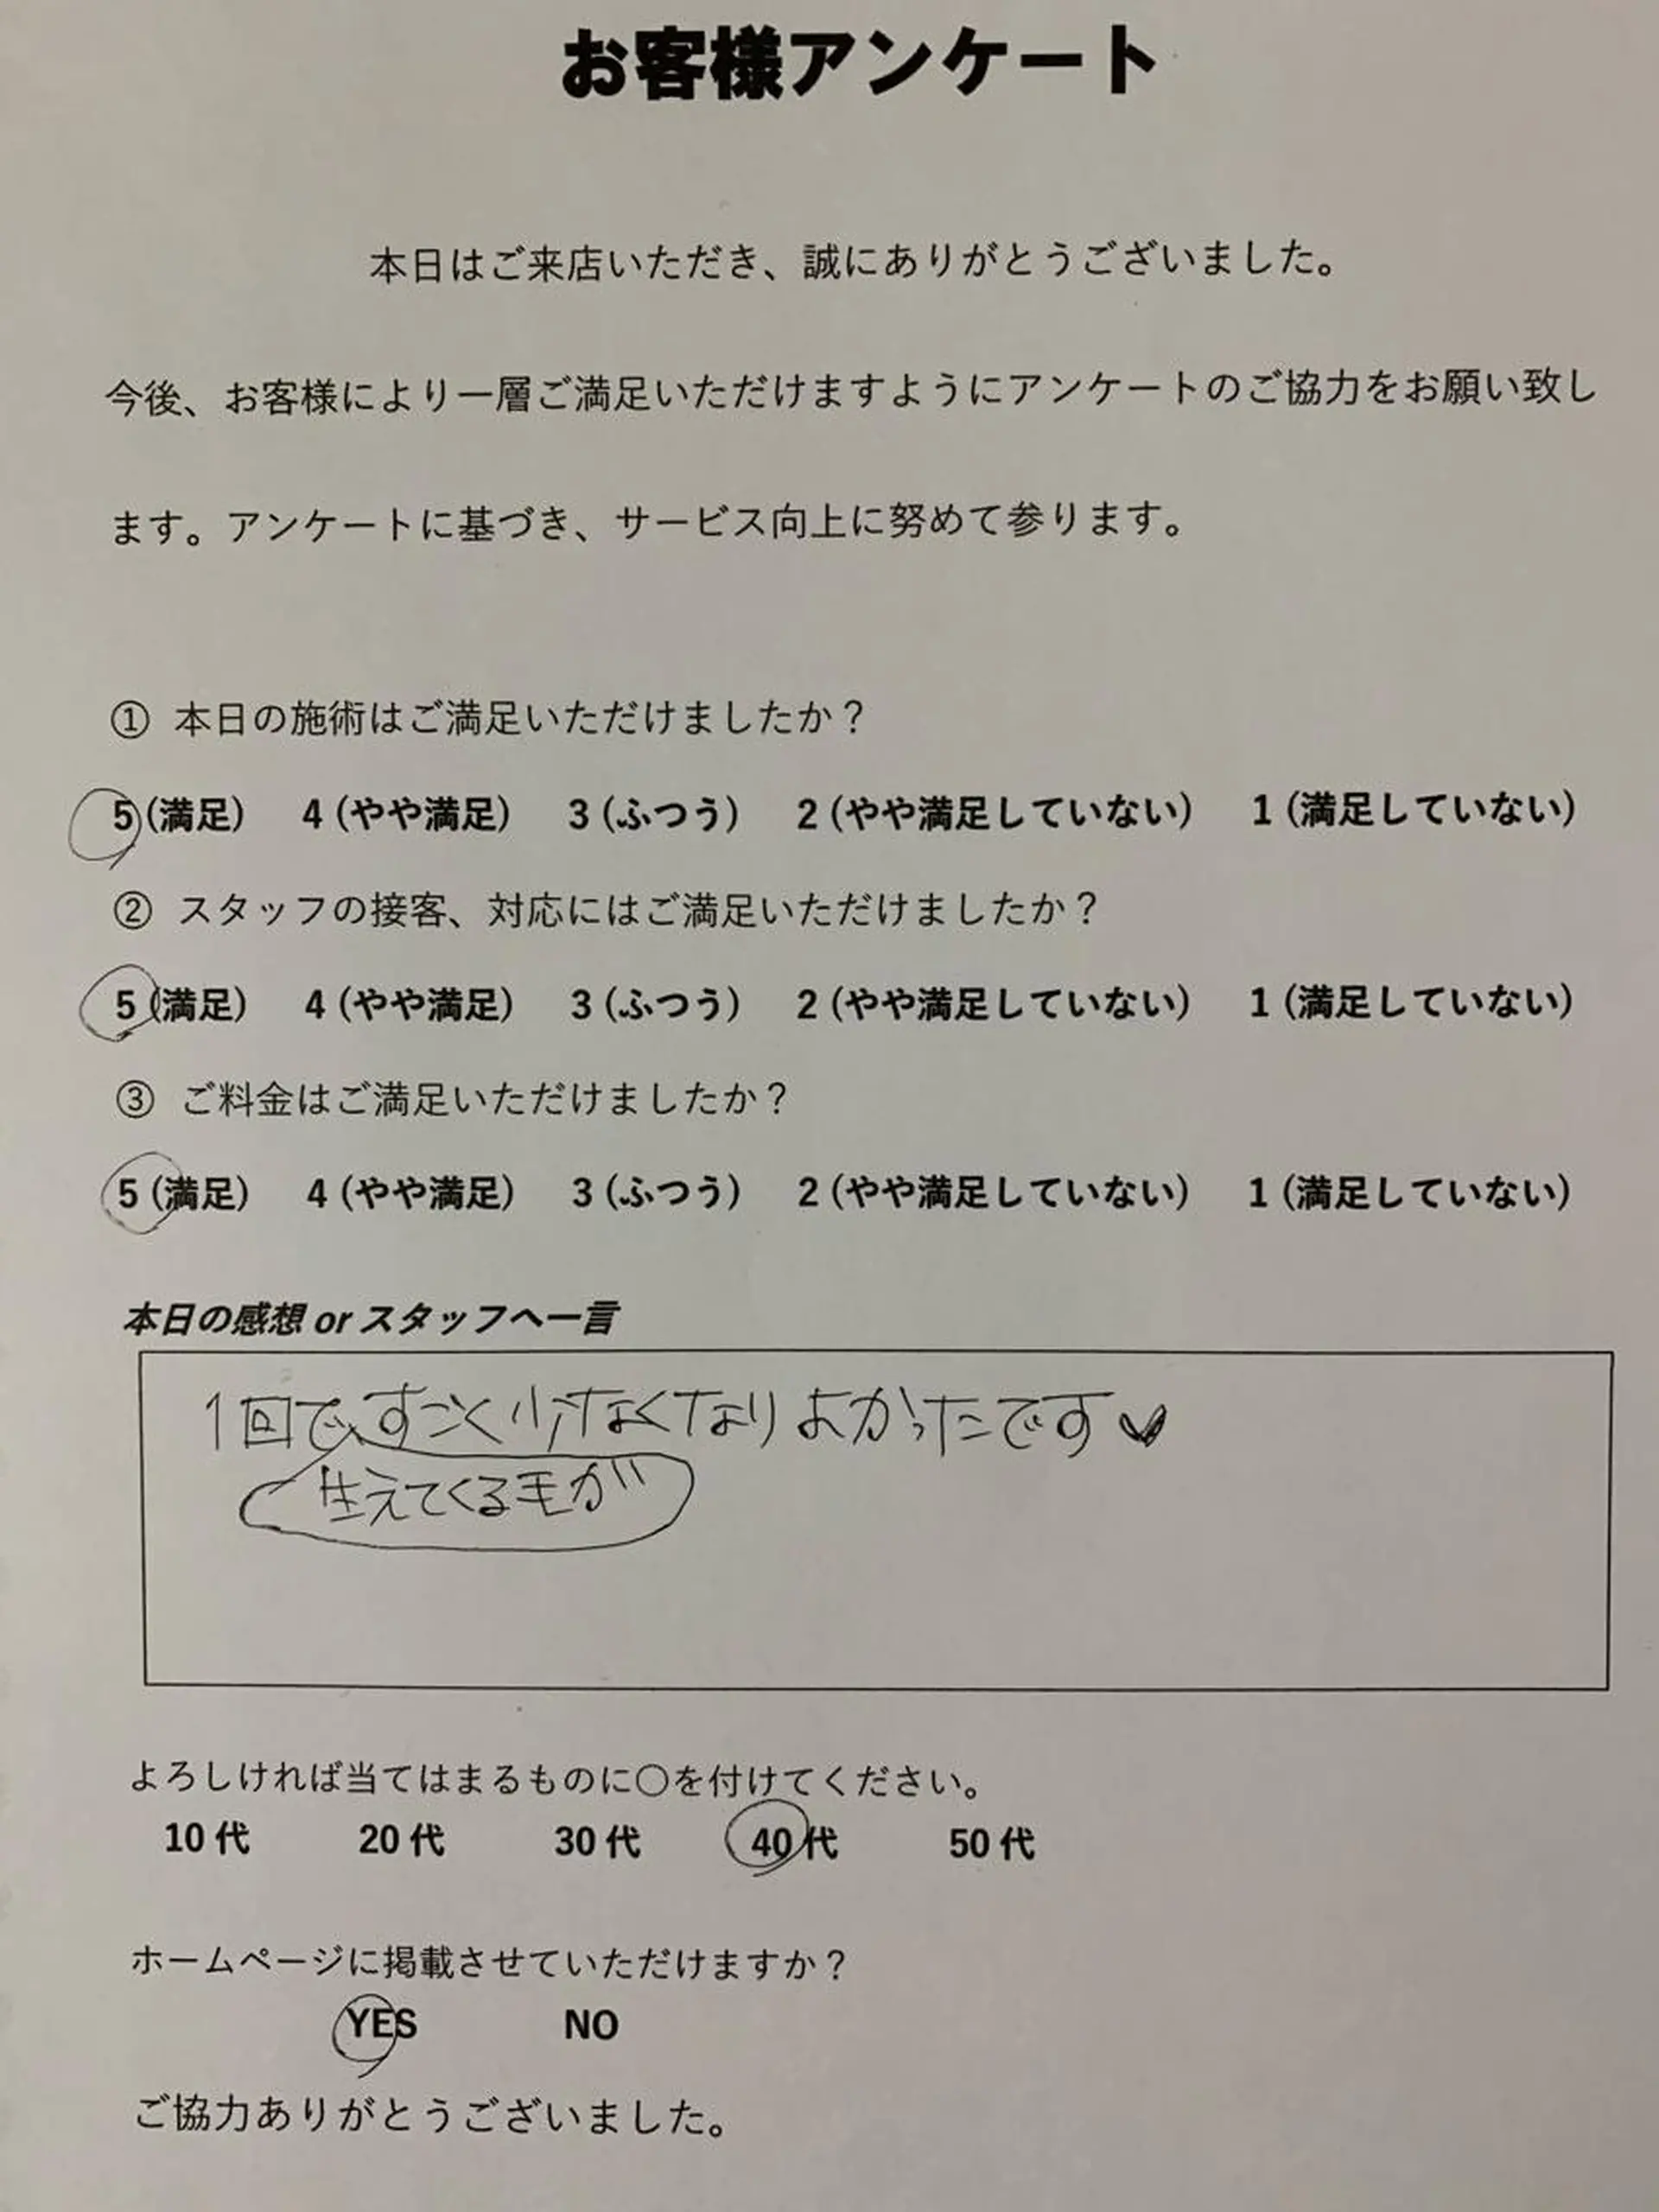 お客様アンケート
本日はご来店いただき、誠にありがとうございました。
今後、お客様により一層ご満足いただけますようにアンケートのご協力をお願い致し
ます。アンケートに基づき、サービス向上に努めて参ります。
① 本日の施術はご満足いただけましたか？
5(満足) 4(やや満足) 3(ふつう) 2(やや満足していない) 1(満足していない)
② スタッフの接客、対応にはご満足いただけましたか？
5(満足) 4(やや満足) 3(ふつう) 2(やや満足していない) 1(満足していない)
③ ご料金はご満足いただけましたか？
5(満足) 4(やや満足) 3(ふつう) 2(やや満足していない) 1(満足していない)
本日の感想 or スタッフへ一言
1回で、すごく少なくなりよかったです♥
生えてくる毛が
よろしければ当てはまるものに〇を付けてください。
10代 20代 30代 40代 50代
ホームページに掲載させていただけますか？
YES NO
ご協力ありがとうございました。